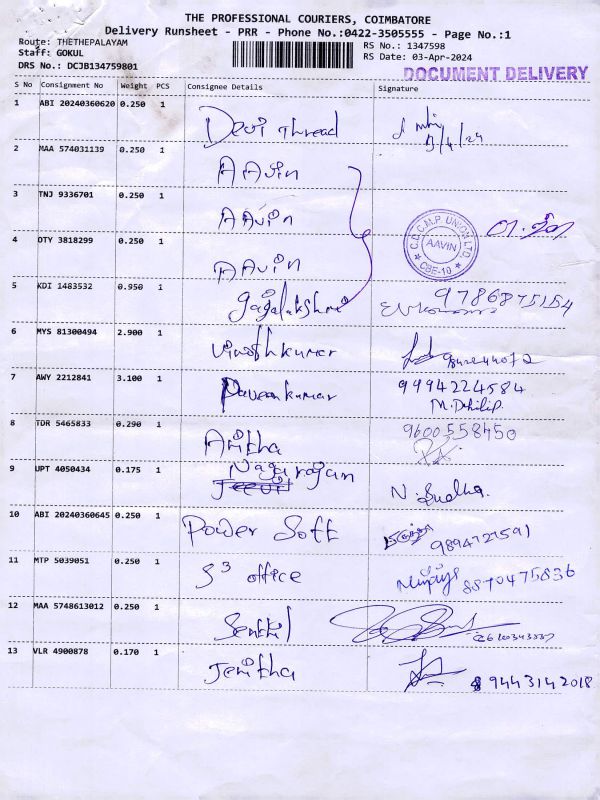 THE PROFESSIONAL COURIERS, COIMBATORE
Delivery Runsheet - PRR - Phone No.:0422-3505555 - Page No.:1
Route: THETHEPALAYAM
RS No.: 1347598
Staff: GOKUL
RS Date: 03-Apr-2024
DRS No.: DCJB134759801
DOCUMENT DELIVERY
S No Consignment No Weight PCS Consignee Details Signature
1 ABI 20240360620 0.250 1 Devi Thread
3/4/24
2 MAA 574031139 0.250 1 AAvin
3 TNJ 9336701 0.250 1 AAvin
C.D.C.M.P. UNION LTD.
AAVIN
CBE-10
4 OTY 3818299 0.250 1 AAvin
5 KDI 1483532 0.950 1 gajalakshmi 9786875154
6 MYS 81300494 2.900 1 Vinothkumar
7 AWY 2212841 3.100 1 Paveenkumar 9994224584
M. Dhilip.
8 TDR 5465833 0.290 1 Anitha 9600558450
9 UPT 4050434 0.175 1 Nagarajan N. Sudha.
10 ABI 20240360645 0.250 1 Power Soft 9894721591
11 MTP 5039051 0.250 1 S3 office 8870475836
12 MAA 5748613012 0.250 1 Senthil
13 VLR 4900878 0.170 1 Jenitha 9443142018